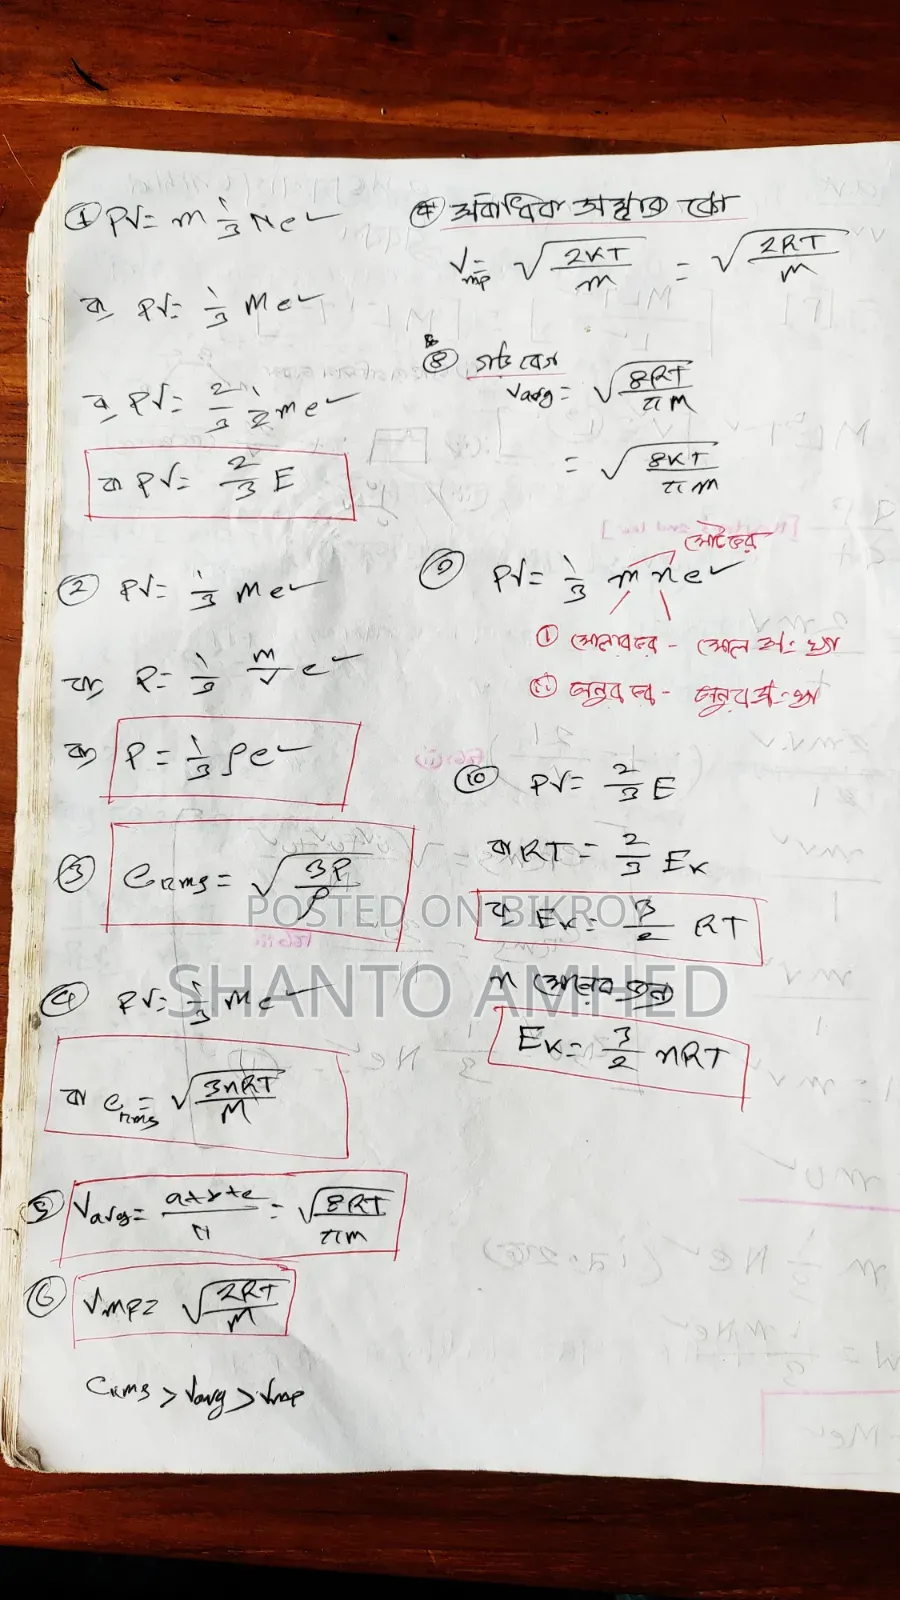 ① PV = m 1/3 Nc²
বা PV = 1/3 Mc²
বা PV = 2/3 1/2 mc²
বা PV = 2/3 E
② PV = 1/3 Mc²
বা P = 1/3 m/V c²
বা P = 1/3 ρc²
③ Crms = √(3P/ρ)
④ PV = 1/3 Mc²
বা Crms = √(3nRT/M)
⑤ Vavg = /n = √(8RT/πM)
⑥ Vmp = √(2RT/M)
Crms > Vavg > Vmp
Vmp = √(2KT/m) = √(2RT/M)
⑧ গড় বেগ
Vavg = √(8RT/πM)
= √(8KT/πm)
⑨ PV = 1/3 m n c²
① মোলার ভর - মোল সংখ্যা
অনুর ভর - অনুর সংখ্যা
⑩ PV = 2/3 E
বা RT = 2/3 EK
বা EK = 3/2 RT
n মোলের জন্য
EK = 3/2 nRT
POSTED ON BIKROY
SHANTO AMHED